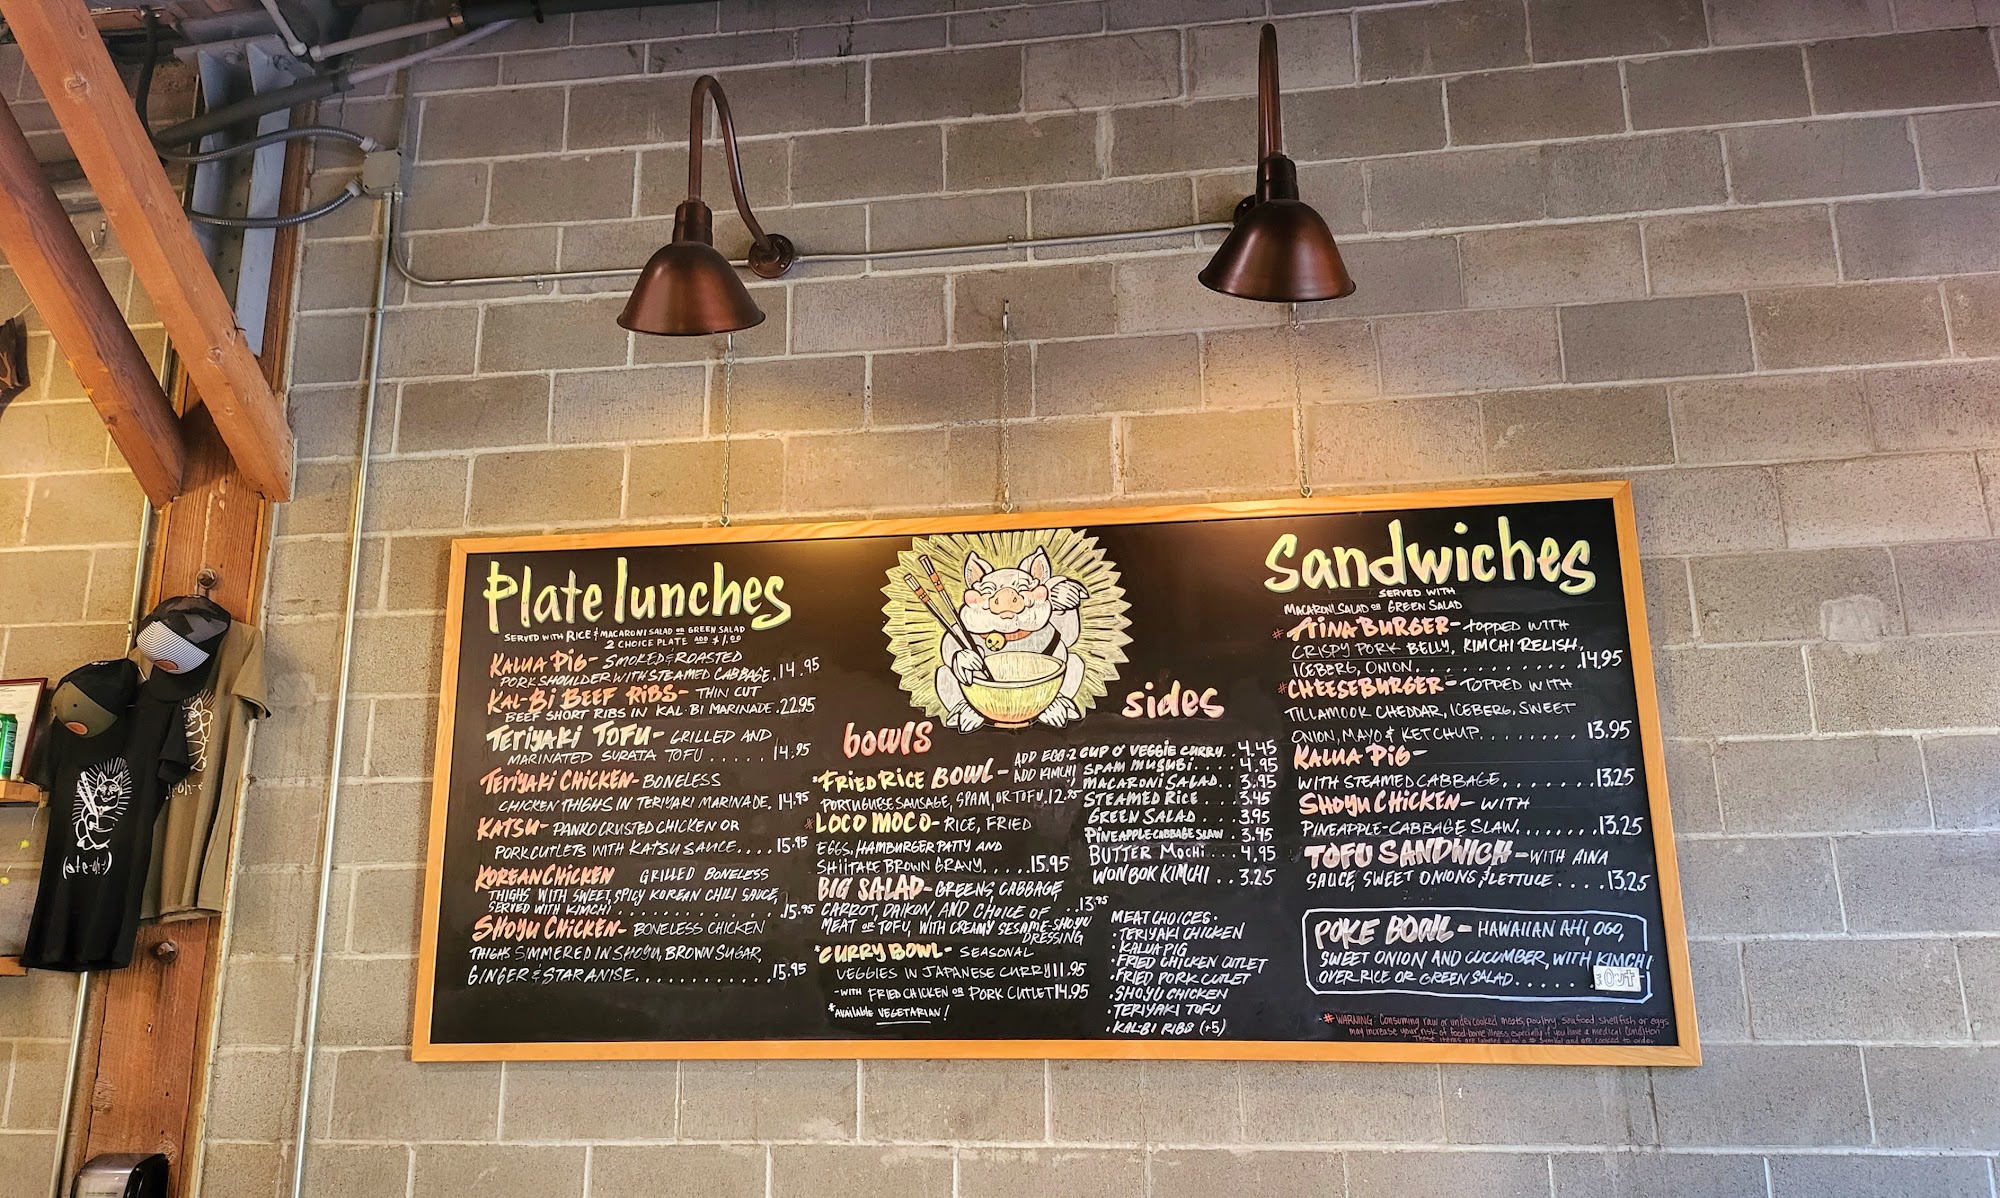 Plate lunches
SERVED WITH RICE & MACARONI SALAD OR GREEN SALAD
2 CHOICE PLATE ADD $1.00
KALUA PIG- SMOKED & ROASTED
PORK SHOULDER WITH STEAMED CABBAGE. 14.95
KAL-BI BEEF RIBS- THIN CUT
BEEF SHORT RIBS IN KAL-BI MARINADE .22.95
TERIYAKI TOFU- GRILLED AND
MARINATED SURATA TOFU ..... 14.95
TERIYAKI CHICKEN- BONELESS
CHICKEN THIGHS IN TERIYAKI MARINADE. 14.95
KATSU- PANKO CRUSTED CHICKEN OR
PORK CUTLETS WITH KATSU SAUCE.... 15.95
KOREAN CHICKEN GRILLED BONELESS
THIGHS WITH SWEET, SPICY KOREAN CHILI SAUCE,
SERVED WITH KIMCHI ............ .15.95
SHOYU CHICKEN- BONELESS CHICKEN
THIGHS SIMMERED IN SHOYU, BROWN SUGAR,
GINGER & STAR ANISE............ 15.95
bowls
*FRIED RICE BOWL- ADD EGG-2
ADD KIMCHI
PORTUGUESE SAUSAGE, SPAM, OR TOFU 12.75
*LOCO MOCO- RICE, FRIED
EGGS, HAMBURGER PATTY AND
SHIITAKE BROWN GRAVY. ....15.95
BIG SALAD- GREENS, CABBAGE,
CARROT, DAIKON, AND CHOICE OF ..13.95
MEAT OR TOFU, WITH CREAMY SESAME-SHOYU
DRESSING
*CURRY BOWL- SEASONAL
VEGGIES IN JAPANESE CURRY 11.95
-WITH FRIED CHICKEN OR PORK CUTLET 14.95
*AVAILABLE VEGETARIAN!
sides
CUP O' VEGGIE CURRY..4.45
SPAM MUSUBI.....4.95
MACARONI SALAD...3.95
STEAMED RICE ...3.45
GREEN SALAD ....3.95
PINEAPPLE-CABBAGE SLAW..3.45
BUTTER MOCHI ...4.95
WON BOK KIMCHI ..3.25
MEAT CHOICES·
·TERIYAKI CHICKEN
·KALUA PIG
·FRIED CHICKEN CUTLET
·FRIED PORK CUTLET
·SHOYU CHICKEN
·TERIYAKI TOFU
·KAL-BI RIBS (+5)
Sandwiches
SERVED WITH
MACARONI SALAD OR GREEN SALAD
*AINA BURGER- TOPPED WITH
CRISPY PORK BELLY, KIMCHI RELISH,
ICEBERG, ONION.............14.95
*CHEESEBURGER- TOPPED WITH
TILLAMOOK CHEDDAR, ICEBERG, SWEET
ONION, MAYO & KETCHUP........ 13.95
KALUA PIG-
WITH STEAMED CABBAGE........13.25
SHOYU CHICKEN- WITH
PINEAPPLE-CABBAGE SLAW.......13.25
TOFU SANDWICH-WITH AINA
SAUCE, SWEET ONIONS, & LETTUCE ....13.25
POKE BOWL- HAWAIIAN AHI, OGO,
SWEET ONION AND CUCUMBER, WITH KIMCHI
OVER RICE OR GREEN SALAD..... OUT
* WARNING: Consuming raw or undercooked meats, poultry, seafood, shellfish or eggs
may increase your risk of food-borne illness especially if you have a medical condition
These items are labeled with a * symbol and are cooked to order
(ate-oh-)